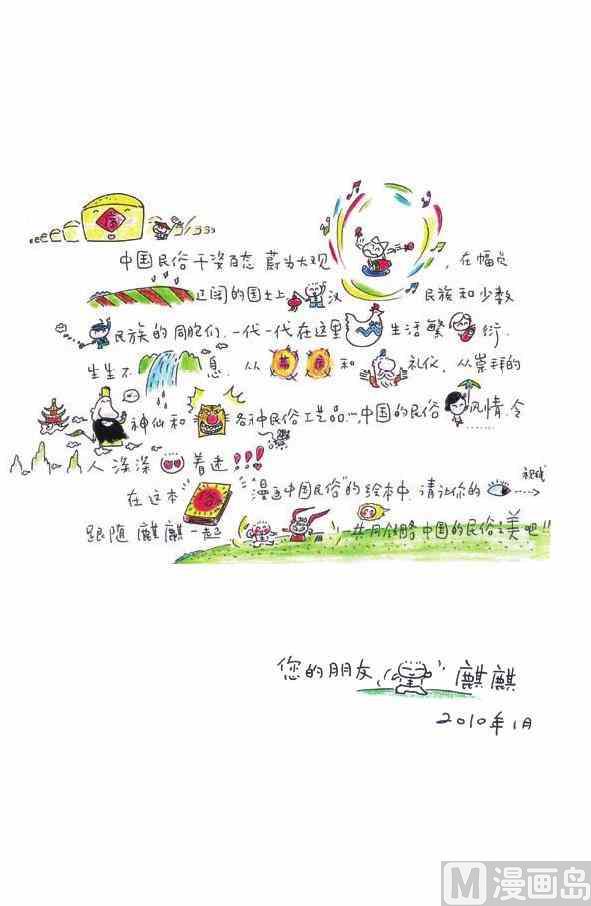 中国民俗千姿百态 蔚为大观,在幅员
辽阔的国土上 汉 民族和少数
民族的同胞们,一代一代在这里 生活繁 衍,
生生不 息,从 和 礼仪,从崇拜的
神仙和 各种民俗工艺品…,中国的民俗 风情,令
人深深 着迷!!!
视线
在这本 俗 “漫画中国民俗”的绘本中,请让你的
跟随 麒麒 一起 一共同领略中国的民俗之美吧”
您的朋友 麒麒
2010年1月
M 漫画岛